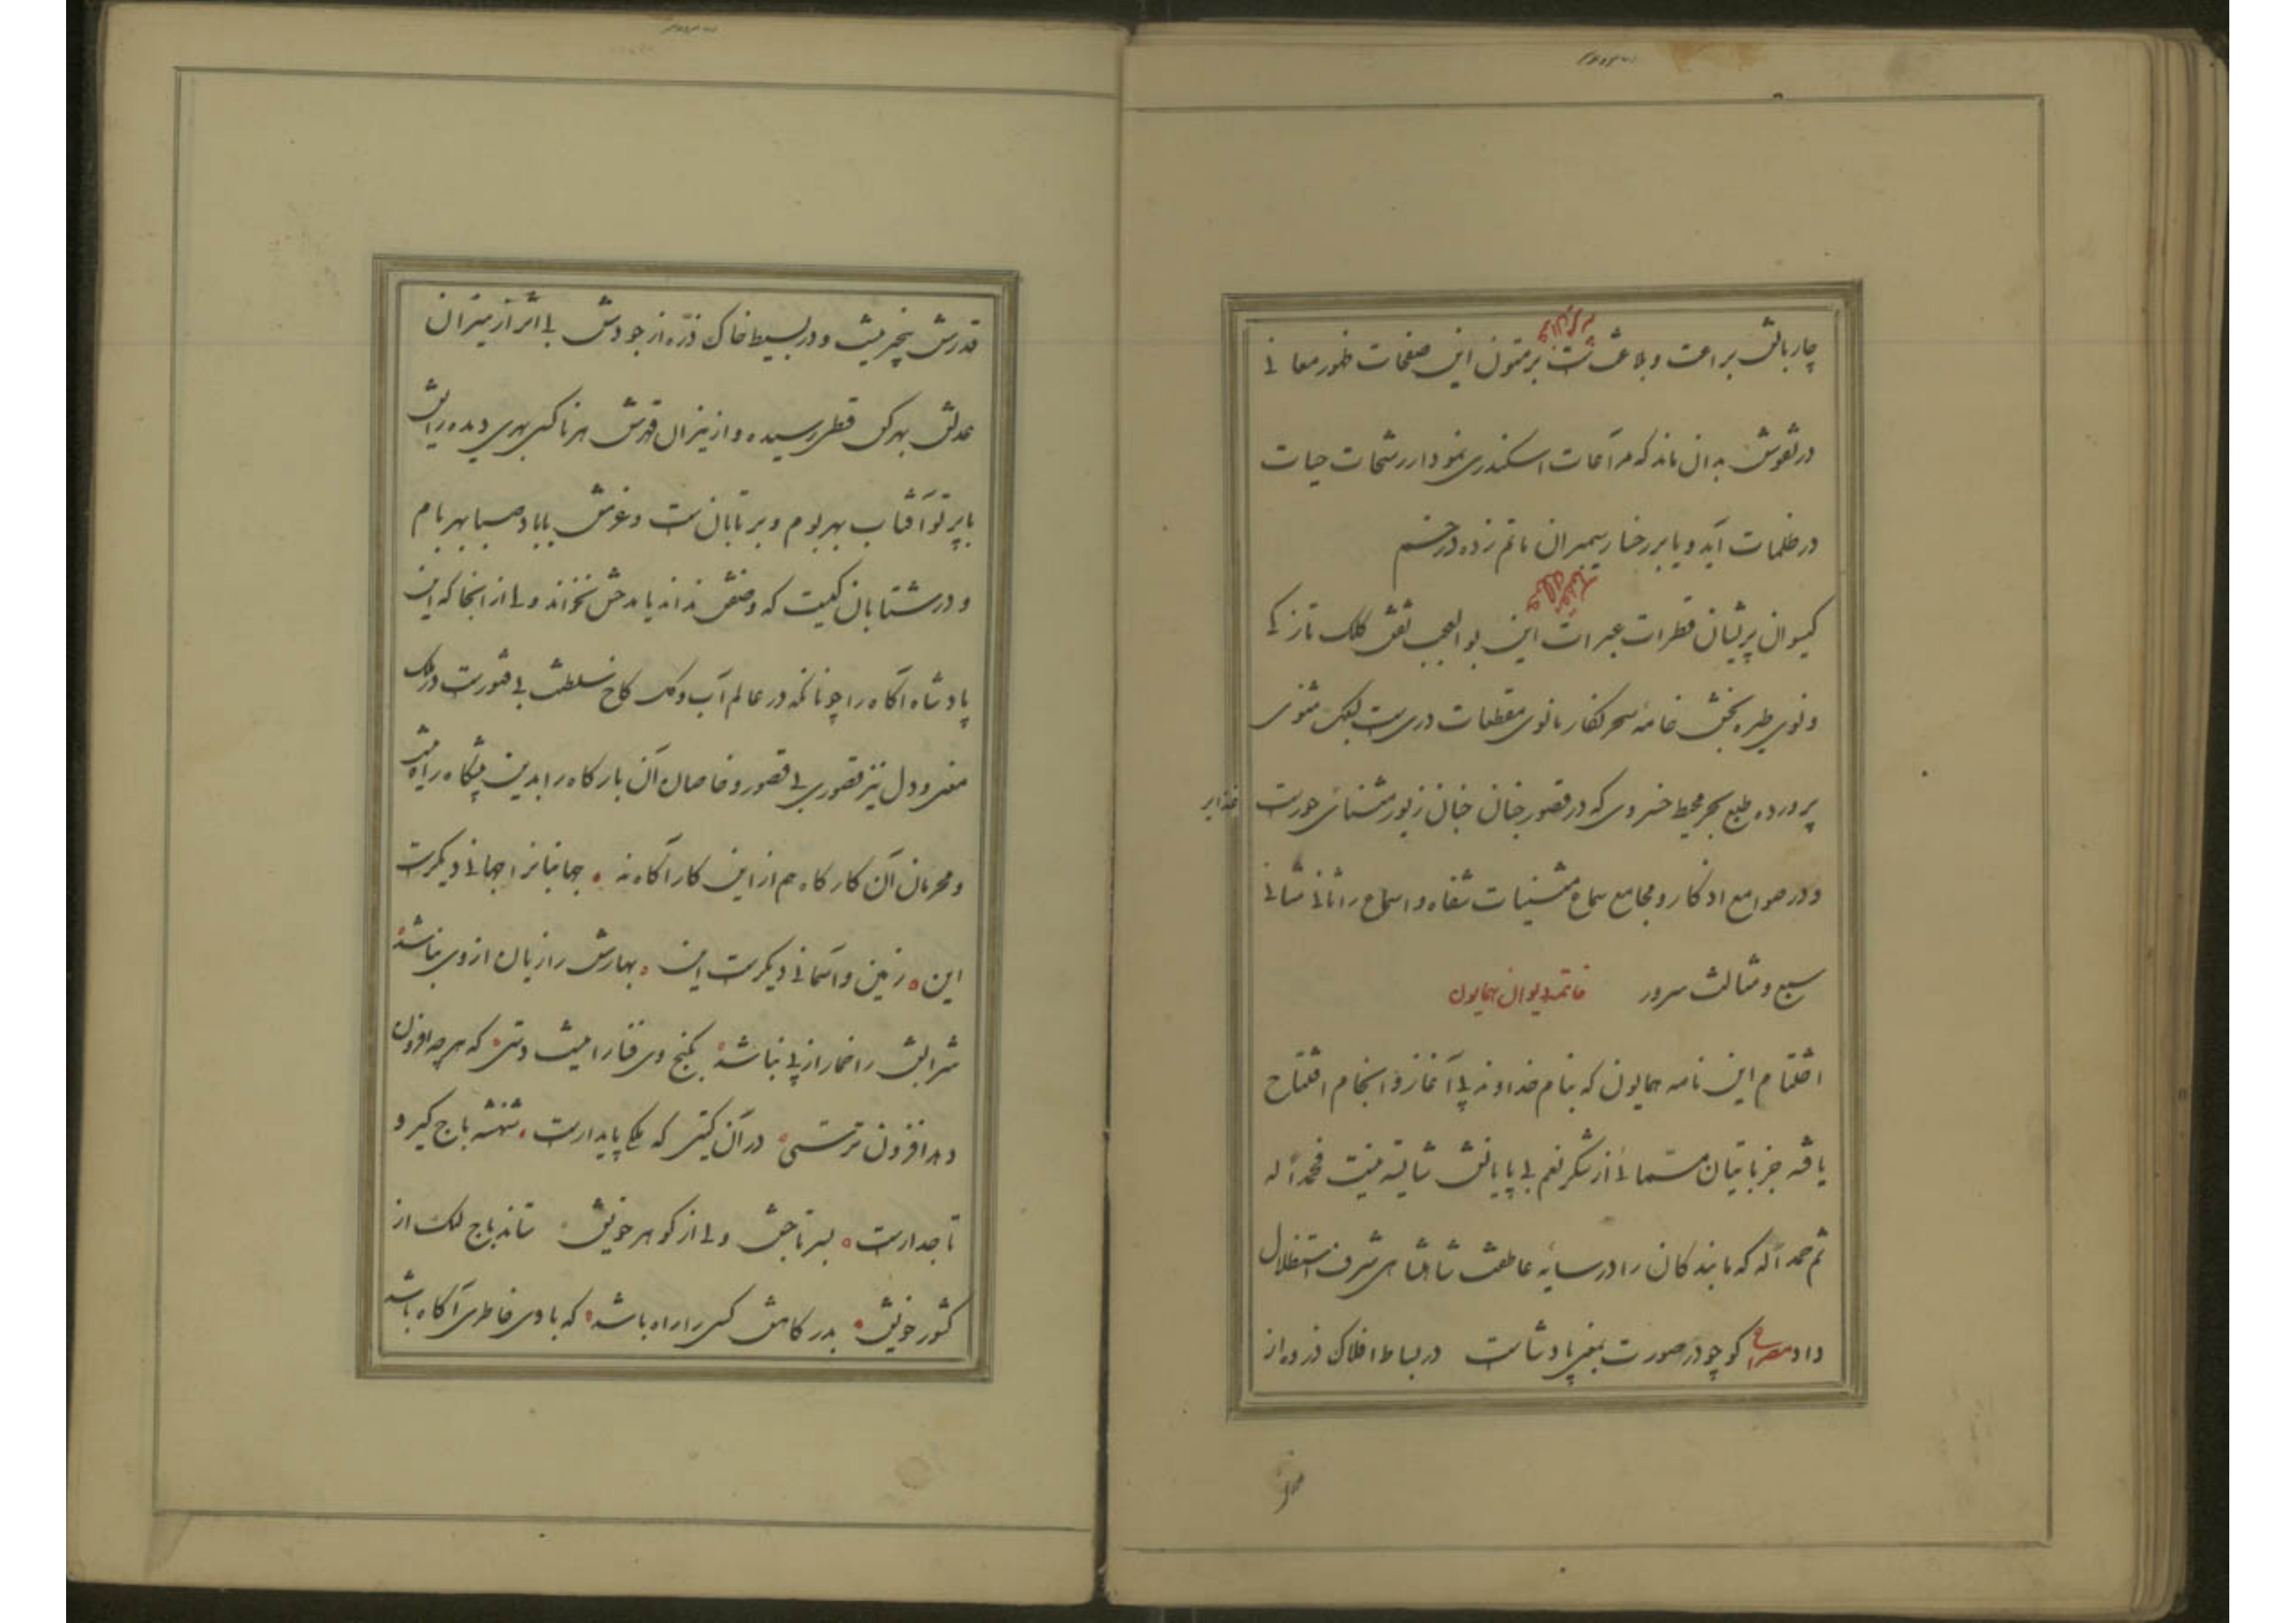 چار بالش براعت و بلاغتست بر متون این صفحات ظهور معانی
در نقوش بدان ماند که مرآت اسکندری نمودار رشحات حیات
در ظلمات آید و یا بر رخسار سیمبران ماتم زده در خم
کیسوان پریشان قطرات عبرات این بوالعجب نقش کلک نازکی
و نوی طیره بخش خامه سحر کفار مانوی مقطعات دریست بسلک مثنوی
پرورده طبع بحر محیط خسروی که در قصور جنان جنان زیور مشنای حورست
و در صوامع اذکار و مجامع سماع مشنیات شفاه و اسماع را ثانی مثانی
سبع و مثالث سرور خاتمه دیوان همایون
اختتام این نامه همایون که بنام خداوند بی آغاز و انجام افتتاح
یافته جز باتیان مستمائی از شکر نعم بی پایانش شایسته نیست فحمدا له
ثم حمدا له که ما بندکان را در سایه عاطفت شاهنشاهی شرف استظلال
داد مصراع کو چو در صورت بمعنی پادشاست در بساط افلاک ذروه از
قدرش بیخبر نیست و در بسیط خاک ذره از جودش بی اثر از میزان
عدلش بهر کس قطری رسیده و از نیران قهرش هر ناکس بهری دیده رایش
با پرتو آفتاب بهر بوم و بر تابانست و عزمش با باد صبا بهر بام
و در شتابان کیست که وصفش نداند یا مدحش نخواند ولی از انجا که این
پادشاه آکاه را چونانکه در عالم آب و کل کاخ سلطنت بی فتورست در ملک
معنی و دل نیز قصوری بی قصور و خاصان آن بارکاه را بدین پیشکاه راه نیست
و محرمان آن کارکاه هم از این کار آکاه نه جهانبانرا جهانی دیکرست
این زمین و آسمانی دیکرست این بهارش را زیان از وی نباشد
شرابش را خمار از پی نباشد بکنج وی فنا را نیست دستی که هر چه افزون
دهد افزون ترستی در آن کیتی که ملکی پایدارست شهنشه باج کیر و
تاجدارست بسر تاجش ولی از کوهر خویش ستاند باج لک از
کشور خویش بدرکاهش کسی را راه باشد که با وی خاطری آکاه باشد